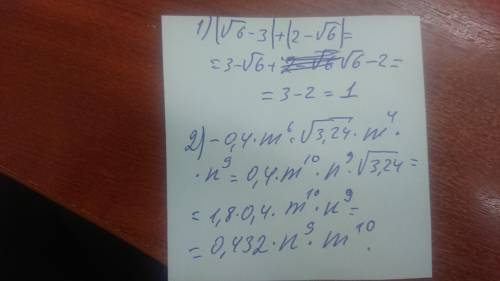 1) |√6-3|+|2-√6|=
=3-√6+√6-2=
=3-2=1
2) -0,4·m⁶·√3,24·m⁴·
·n⁹=0,4·m¹⁰·n⁹·√3,24=
=1,8·0,4·m¹⁰·n⁹=
=0,432·n⁹·m¹⁰.